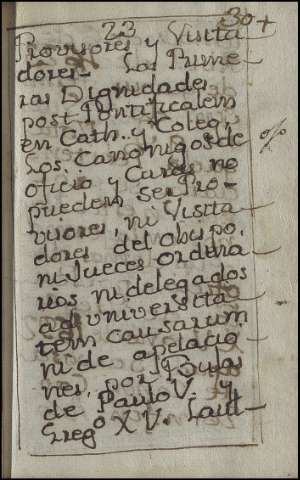 23
30+
Provisores y Visita
dores. Las Prime
ras Dignidades
post Pontificalem
en Cath. y Coleg.
Los Canonigos de
oficio y Curas no
pueden ser Pro-
visores, ni Visita
dores del obispo,
ni Jueces ordina
rios ni delegados
ad universita
tem causarum
ni de apelacio
nes, por Bulas
de Paulo V. y
Grego XV. Laut